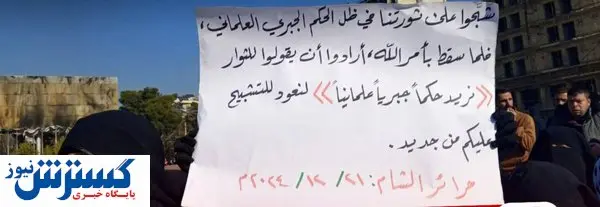 شبَّحوا على ثورتنا في ظل الحكم الجبري العلماني،
فلما سقط بأمر الله، أرادوا أن يقولوا للثوار
«نريد حكماً جبرياً علمانياً» لنعود للتشبيح
عليكم من جديد.
حرائر الشام: ٢١/ ١٢/ ٢٠٢٤م
گسترش نیوز
پایگاه خبری